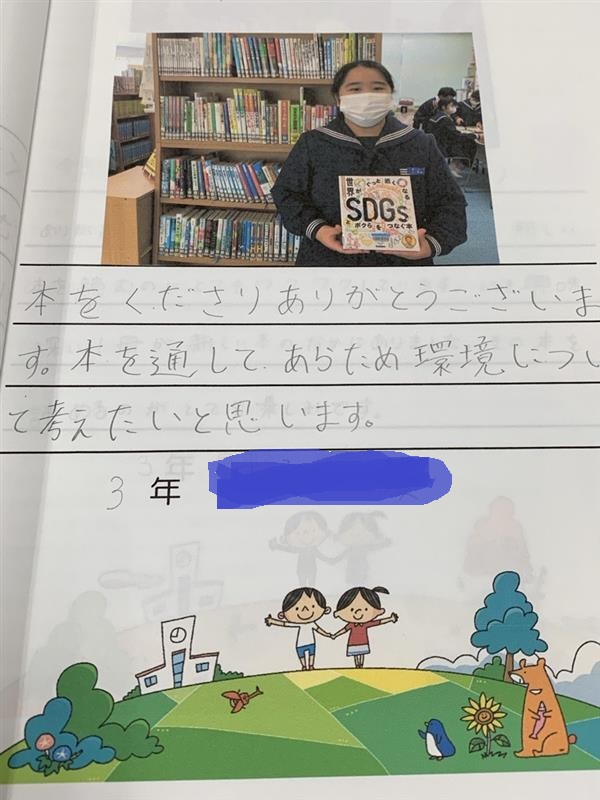 世界がぐっと近くなる
SDGsと
ボクらをつなぐ本
本をくださりありがとうございま
す。本を通して、あらため環境につい
て考えたいと思います。
3年